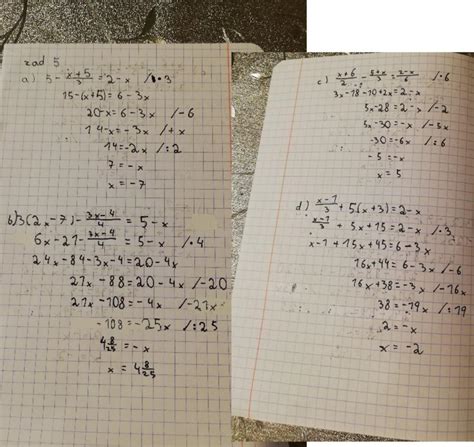 zad 5
a) 5 - (x+5)/3 = 2 - x /·3
15-(x+5) = 6-3x
20-x = 6-3x /-6
14-x = -3x /+x
14 = -2x /:2
7 = -x
x = -7
b) 3(2x-7) - (3x-4)/4 = 5-x
6x-21 - (3x-4)/4 = 5-x /·4
24x-84-3x-4 = 20-4x
21x-88 = 20-4x /-20
21x-108 = -4x /-21x
-108 = -25x /:25
4 8/25 = -x
x = 4 8/25
c) (x+6)/2 - (5+x)/3 = (2-x)/6 /·6
3x-18-10+2x = 2-x
5x-28 = 2-x /-2
5x-30 = -x /-5x
-30 = -6x /:6
-5 = -x
x = 5
d) (x-1)/3 + 5(x+3) = 2-x
(x-1)/3 + 5x+15 = 2-x /·3
x-1+15x+45 = 6-3x
16x+44 = 6-3x /-6
16x+38 = -3x /-16x
38 = -19x /:19
2 = -x
x = -2